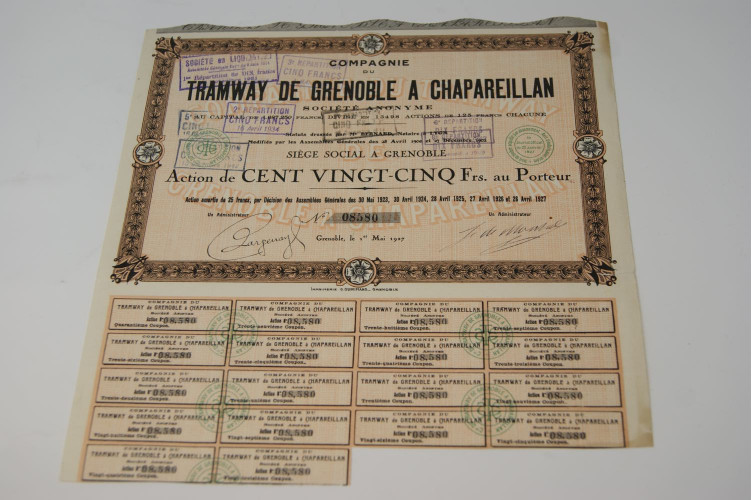 COMPAGNIE
DU
TRAMWAY DE GRENOBLE A CHAPAREILLAN
SOCIÉTÉ ANONYME
AU CAPITAL DE FRANCS DIVISÉ EN ACTIONS DE 125 FRANCS CHACUNE
SOCIÉTÉ EN LIQUIDATION
CINQ FRANCS
2e RÉPARTITION
CINQ FRANCS
DIX FRANCS
Statuts dressés par Me BERNARD, Notaire à LYON
Modifiés par les Assemblées Générales des
SIÈGE SOCIAL A GRENOBLE
Action de CENT VINGT-CINQ Frs. au Porteur
Action amortie de 25 francs, par Décision des Assemblées Générales des 30 Mai 1923, 30 Avril 1924, 28 Avril 1925, 27 Avril 1926 et 26 Avril 1927
Un Administrateur No 08580 Un Administrateur
Grenoble, le 1er Mai 1927
COMPAGNIE DU COMPAGNIE DU COMPAGNIE DU COMPAGNIE DU
TRAMWAY DE GRENOBLE A CHAPAREILLAN TRAMWAY DE GRENOBLE A CHAPAREILLAN TRAMWAY DE GRENOBLE A CHAPAREILLAN TRAMWAY DE GRENOBLE A CHAPAREILLAN
Société Anonyme Société Anonyme Société Anonyme Société Anonyme
Action No 08,580 Action No 08,580 Action No 08,580 Action No 08,580
Quarantième Coupon. Trente-neuvième Coupon. Trente-huitième Coupon. Trente-septième Coupon.
COMPAGNIE DU COMPAGNIE DU COMPAGNIE DU COMPAGNIE DU
TRAMWAY DE GRENOBLE A CHAPAREILLAN TRAMWAY DE GRENOBLE A CHAPAREILLAN TRAMWAY DE GRENOBLE A CHAPAREILLAN TRAMWAY DE GRENOBLE A CHAPAREILLAN
Société Anonyme Société Anonyme Société Anonyme Société Anonyme
Action No 08,580 Action No 08,580 Action No 08,580 Action No 08,580
Trente-sixième Coupon. Trente-cinquième Coupon. Trente-quatrième Coupon. Trente-troisième Coupon.
COMPAGNIE DU COMPAGNIE DU COMPAGNIE DU COMPAGNIE DU
TRAMWAY DE GRENOBLE A CHAPAREILLAN TRAMWAY DE GRENOBLE A CHAPAREILLAN TRAMWAY DE GRENOBLE A CHAPAREILLAN TRAMWAY DE GRENOBLE A CHAPAREILLAN
Société Anonyme Société Anonyme Société Anonyme Société Anonyme
Action No 08,580 Action No 08,580 Action No 08,580 Action No 08,580
Trente-deuxième Coupon. Trente-unième Coupon. Trentième Coupon. Vingt-neuvième Coupon.
COMPAGNIE DU COMPAGNIE DU COMPAGNIE DU COMPAGNIE DU
TRAMWAY DE GRENOBLE A CHAPAREILLAN TRAMWAY DE GRENOBLE A CHAPAREILLAN TRAMWAY DE GRENOBLE A CHAPAREILLAN TRAMWAY DE GRENOBLE A CHAPAREILLAN
Société Anonyme Société Anonyme Société Anonyme Société Anonyme
Action No 08,580 Action No 08,580 Action No 08,580 Action No 08,580
Vingt-huitième Coupon. Vingt-septième Coupon. Vingt-sixième Coupon. Vingt-cinquième Coupon.
COMPAGNIE DU COMPAGNIE DU
TRAMWAY DE GRENOBLE A CHAPAREILLAN TRAMWAY DE GRENOBLE A CHAPAREILLAN
Société Anonyme Société Anonyme
Action No 08,580 Action No 08,580
Vingt-quatrième Coupon. Vingt-troisième Coupon.